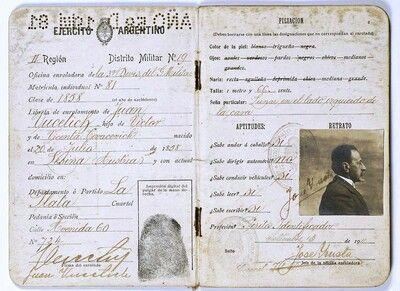 EJÉRCITO ARGENTINO
II Región Distrito Militar Nº 19
Oficina enroladora de la
Matrícula individual Nº 81
Clase de 1858
(el año de nacimiento)
Libreta de enrolamiento de Juan
Vucetich hijo de Victor
y de Vicenta Covacevich nacido
el 20 de Julio de 1858
en Lesina (Austria) y con actual
domicilio en:
Departamento ó Partido La
Plata Cuartel
Pedanía ó Sección
Calle Avenida 60
Nº
Impresión digital del pulgar de la mano derecha.
Firma del enrolado
Juan Vucetich
FILIACION
(Deben borrarse con una línea las designaciones que no correspondan al enrolado)
Color de la piel: blanca-trigueña-negra.
Ojos: azules-verdosos-pardos-negros-chicos-medianos-
grandes.
Nariz: recta-aguileña-deprimida-chica-mediana-grande.
Talla: 1 metro y cm.
Seña particular: Lunar en el lado izquierdo de
la cara
APTITUDES: RETRATO
¿Sabe andar á caballo? Si
¿Sabe dirigir automóvil? no
¿Sabe conducir vehículos? Si
¿Sabe leer? Si
¿Sabe escribir? Si
Profesión: Perito Identificador
de 19
Sello
Jefe de la oficina enroladora